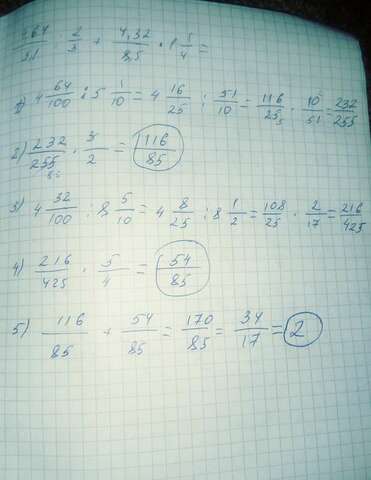 4,64/5,1 : 2/3 + 4,32/8,5 · 1 5/4 =
1) 4 64/100 : 5 1/10 = 4 16/25 : 51/10 = 116/25 5 · 10/51 = 232/255
2) 232/255 85 · 3/2 = 116/85
3) 4 32/100 : 8 5/10 = 4 8/25 : 8 1/2 = 108/25 · 2/17 = 216/425
4) 216/425 · 5/4 = 54/85
5) 116/85 + 54/85 = 170/85 = 34/17 = 2